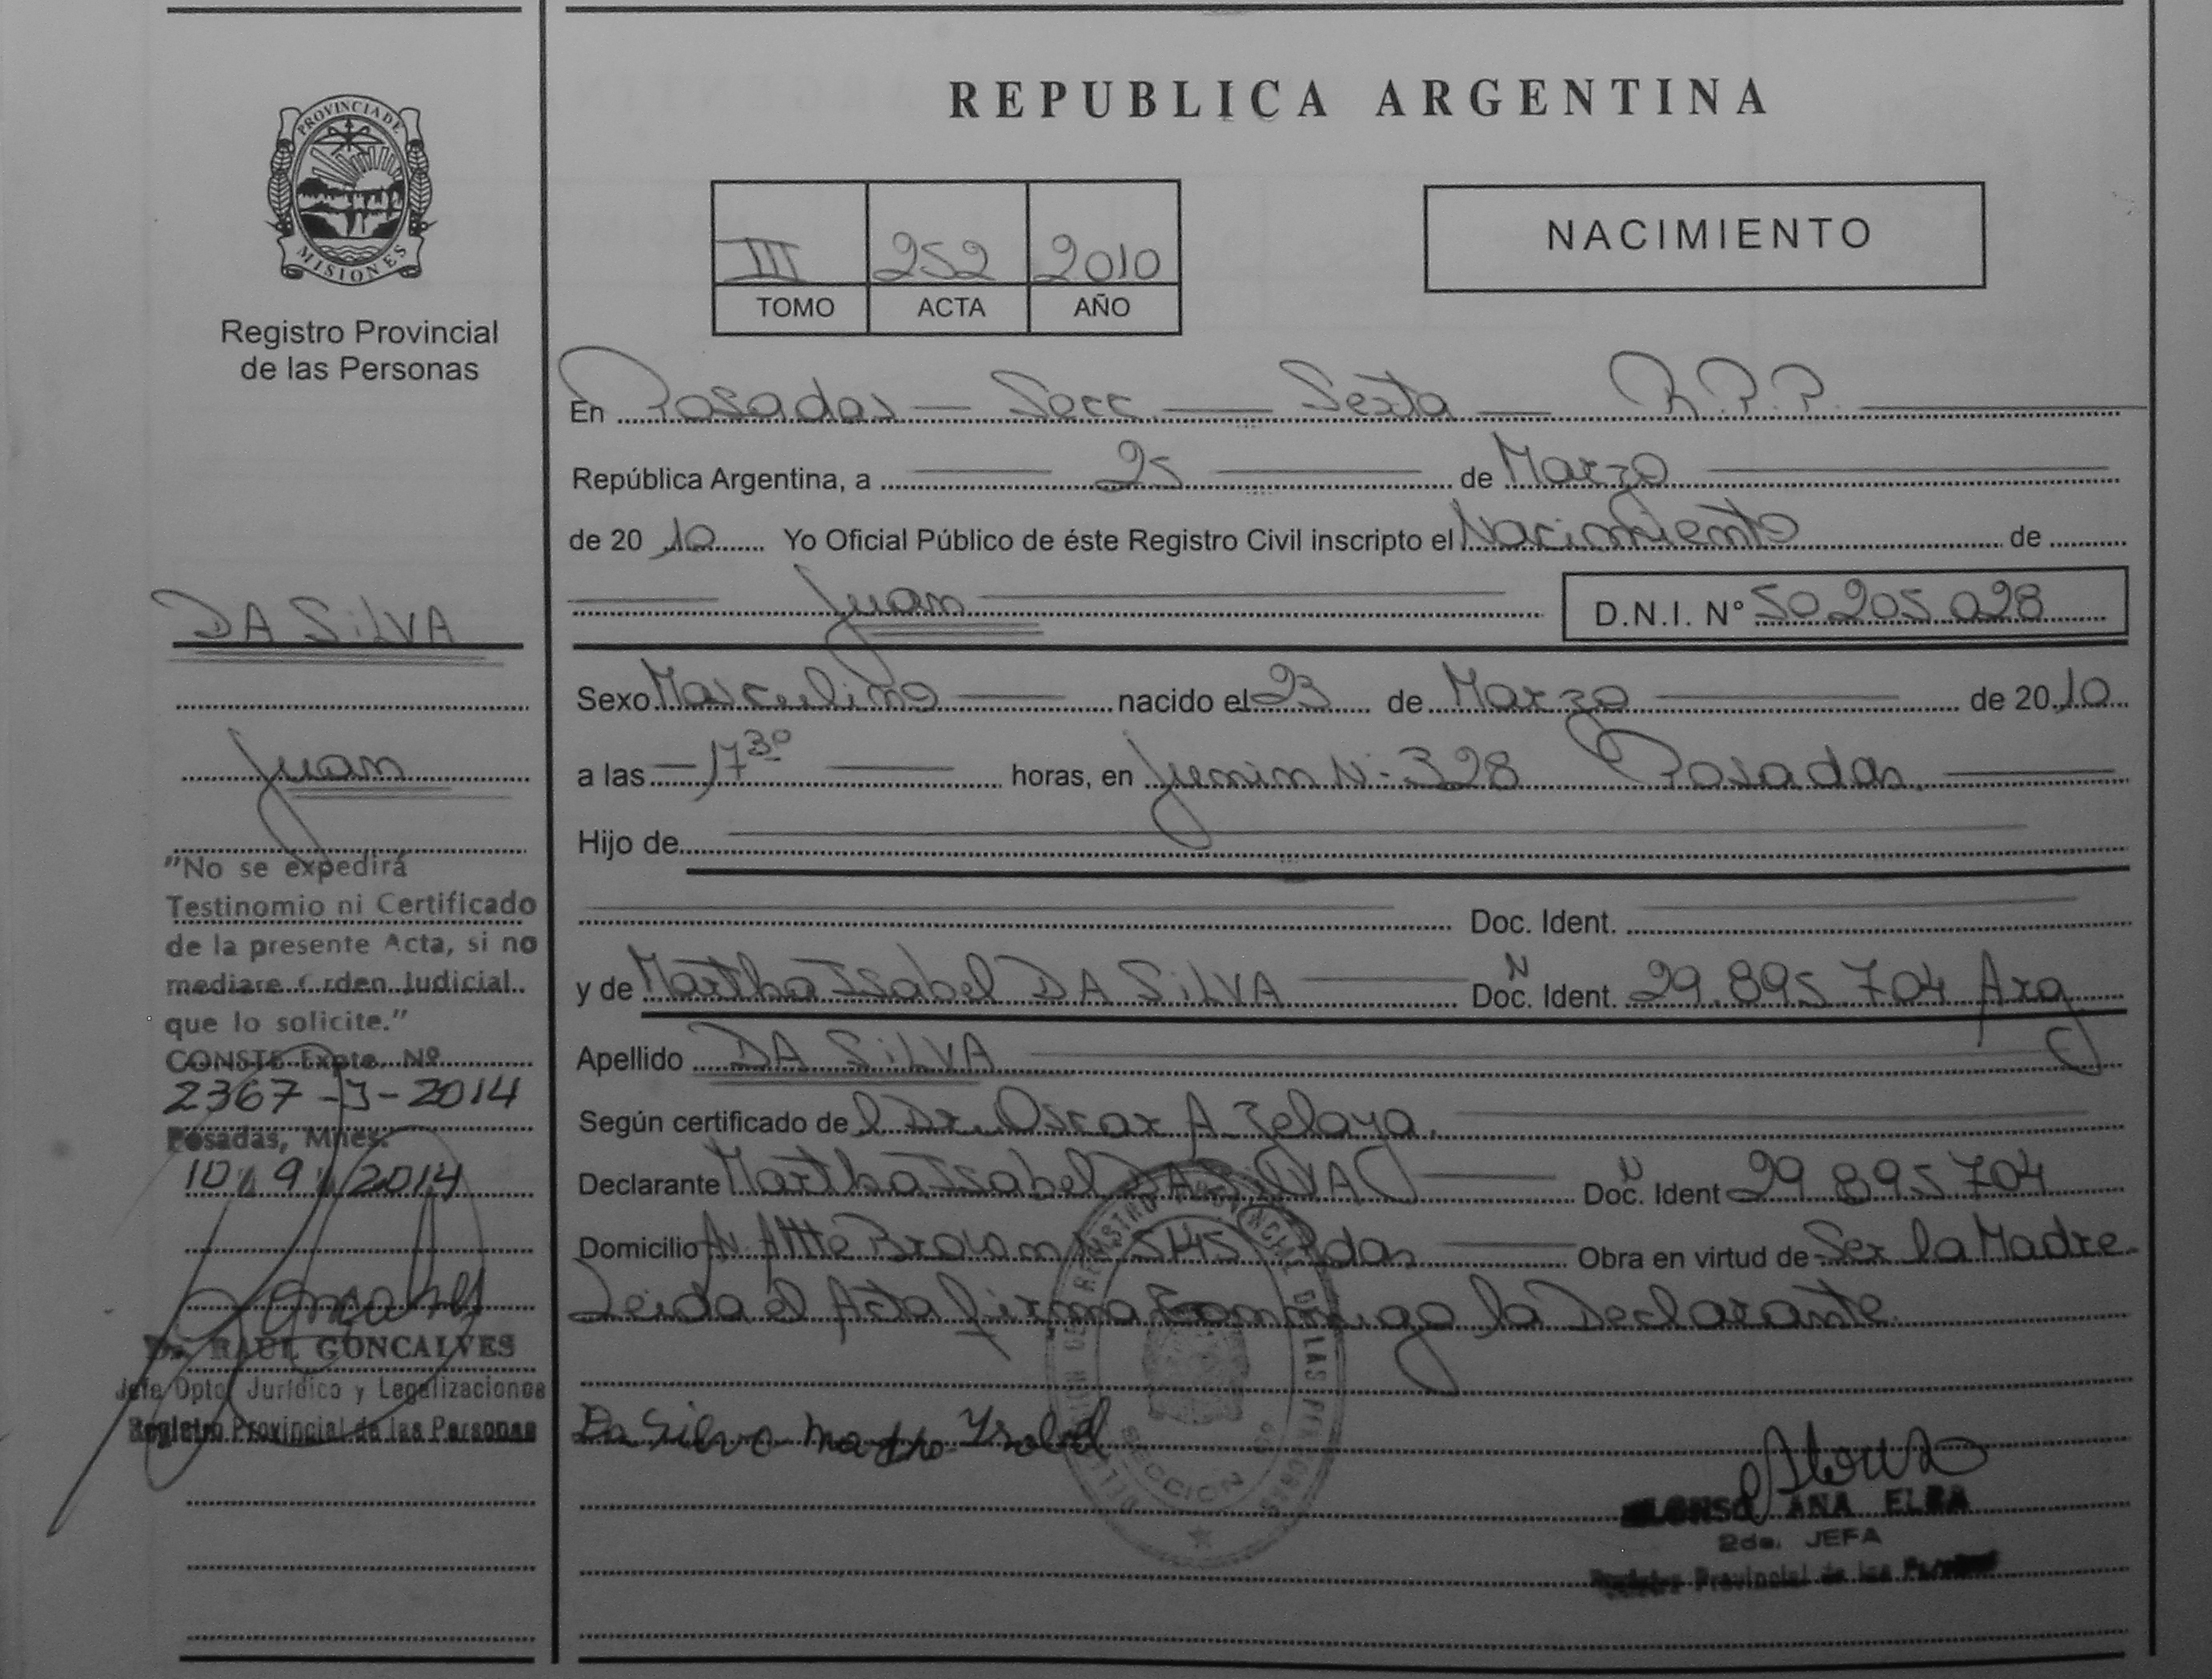 REPUBLICA ARGENTINA
PROVINCIA DE
MISIONES
Registro Provincial
de las Personas
III 252 2010
TOMO ACTA AÑO
NACIMIENTO
En Posadas — Secc. — Sexta — R.P.P.
República Argentina, a 25 de Marzo
de 2010 Yo Oficial Público de éste Registro Civil inscripto el Nacimiento de
Juan D.N.I. N° 50 205 028
Sexo Masculino nacido el 23 de Marzo de 2010
a las 17 30 horas, en Junin N- 328 Posadas.
Hijo de
Doc. Ident.
y de Martha Isabel DA SiLVA Doc. N Ident. 29.895.704 Arg
Apellido DA SiLVA
Según certificado del Dr. Oscar A. Zelaya.
Declarante Martha Isabel DA SiLVA Doc. N Ident 29 895 704
Domicilio Av Altte Brown 5145 Pdas Obra en virtud de Ser la Madre.
Leida el Acta firma conmigo la Declarante.
Da Silva Martha Ysabel
ALONSO ANA ELBA
2da. JEFA
Registro Provincial de las Personas
REGISTRO PROVINCIAL DE LAS PERSONAS
SECCION
DA SiLVA
Juan
"No se expedirá
Testinomio ni Certificado
de la presente Acta, si no
mediare Orden Judicial
que lo solicite."
CONSTE Expte. Nº
2367-J-2014
Posadas, Mnes.
10/9/2014
Dr. RAUL GONCALVES
Jefe Dpto. Jurídico y Legalizaciones
Registro Provincial de las Personas